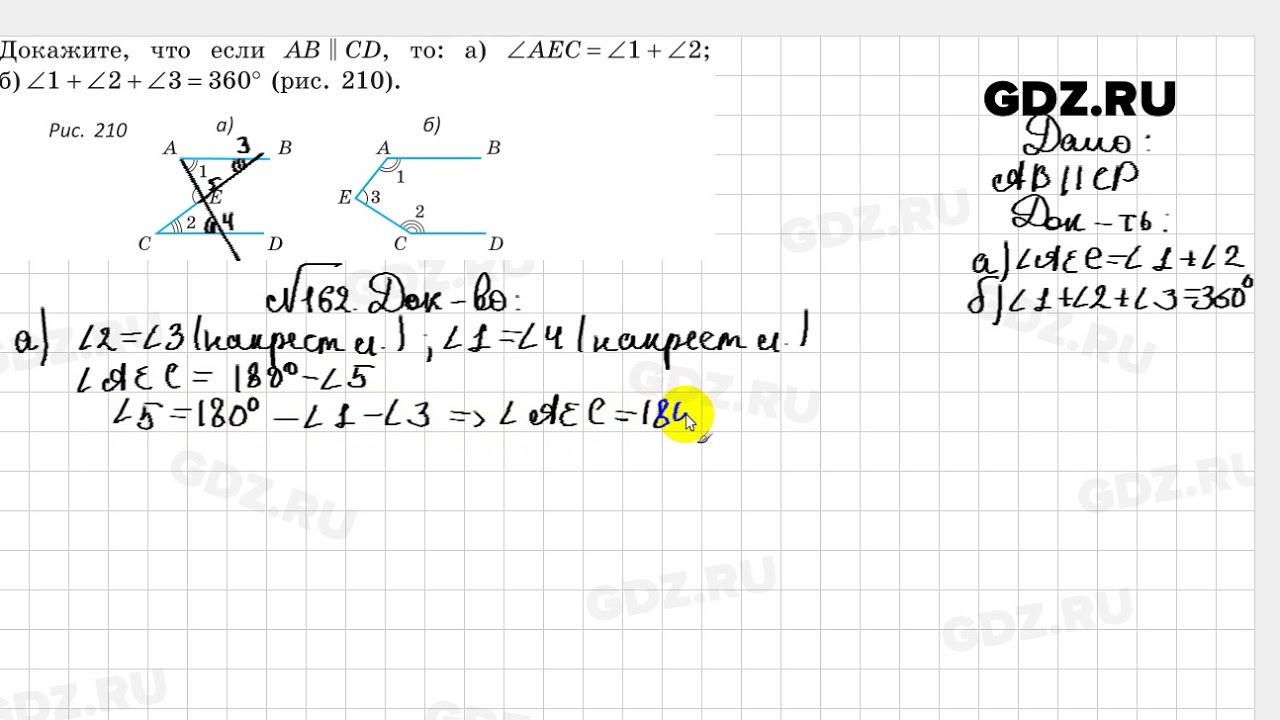 Докажите, что если AB ∥ CD, то: а) ∠AEC = ∠1 + ∠2;
б) ∠1 + ∠2 + ∠3 = 360° (рис. 210).
GDZ.RU
Рис. 210
а)
б)
A 3 B
1
5
E
2 4
C D
A B
1
E 3
2
C D
Дано:
AB || CD
Док-ть:
а) ∠AEC = ∠1 + ∠2
б) ∠1 + ∠2 + ∠3 = 360°
№162. Док-во:
а) ∠2 = ∠3 (накрест л.); ∠1 = ∠4 (накрест л.)
∠AEC = 180° - ∠5
∠5 = 180° - ∠1 - ∠3 => ∠AEC = 180
GDZ.RU
GDZ.RU
GDZ.RU
GDZ.RU
GDZ.RU
GDZ.RU
GDZ.RU
GDZ.RU
GDZ.RU
GDZ.RU
GDZ.RU